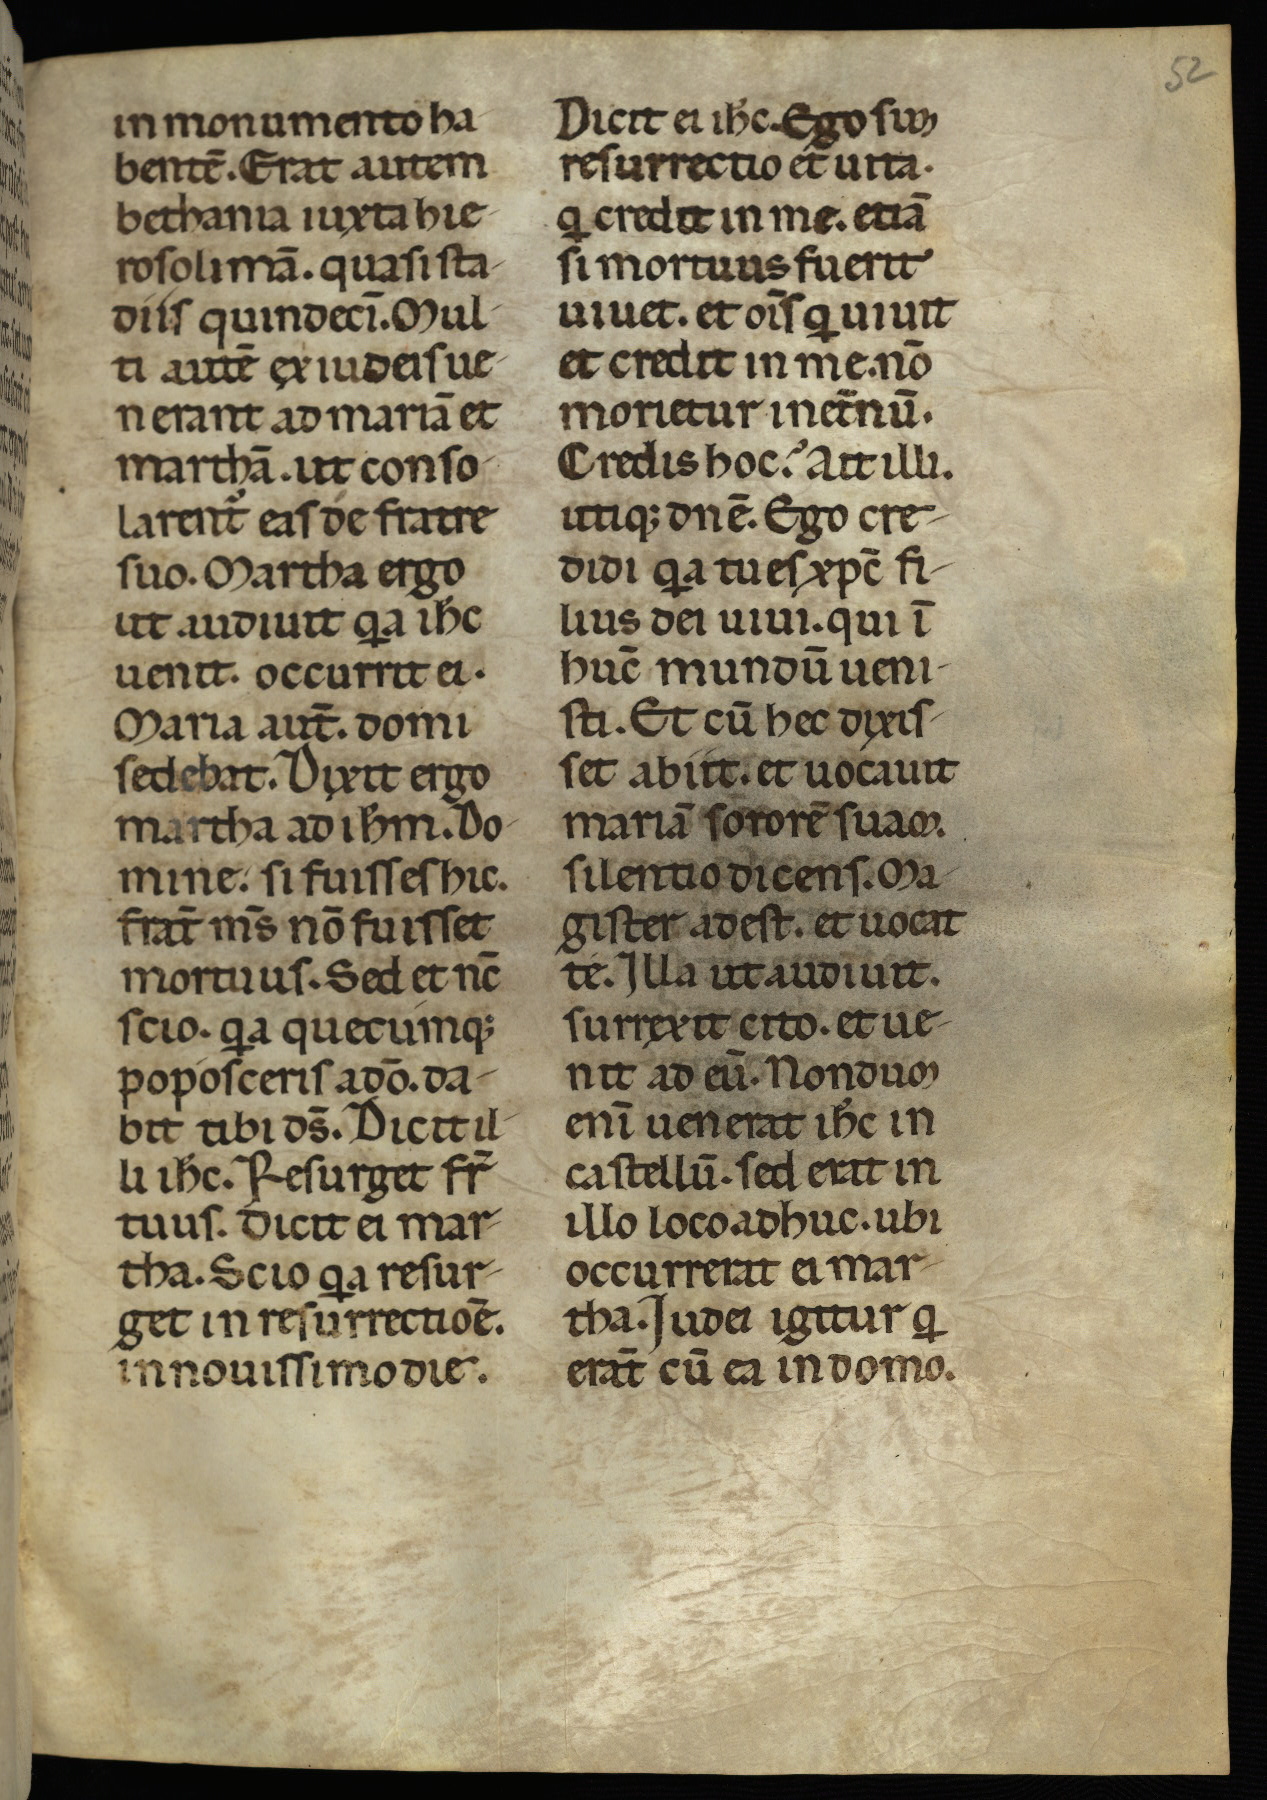 52
in monumento ha
bentē. Erat autem
bethania iuxta hie-
rosolimā. quasi sta-
diis quindecī. Mul-
ti autē ex iudeis ue-
nerant ad mariā et
marthā. ut conso-
larent᷑ eas de fratre
suo. Martha ergo
ut audiuit qa ihc
uenit. occurrit ei.
Maria aut̄. domi
sedebat. Dixit ergo
martha ad ihm. Do-
mine. si fuisses hic.
frat̄ ms̄ nō fuisset
mortuus. Sed et nc̄
scio. qa quecumq;
poposceris a dō. da-
bit tibi ds̄. Dicit il-
li ihc. Resurget fr̄
tuus. Dicit ei mar-
tha. Scio qa resur-
get in resurrectiōe.
in nouissimo die.
Dicit ei ihc. Ego sum
resurrectio et uita.
q credit in me. etiā
si mortuus fuerit
uiuet. et oīs q uiuit
et credit in me. nō
morietur in et̄nū.
Credis hoc? Ait illi.
utiq; dnē. Ego cre-
didi qa tu es xpc̄ fi-
lius dei uiui. qui ī
huc̄ mundū ueni-
sti. Et cū hec dixis-
set abiit. et uocauit
mariā sororē suam.
silentio dicens. Ma-
gister adest. et uocat
te. Illa ut audiuit.
surrexit cito. et ue-
nit ad eū. Nondum
enī uenerat ihc in
castellū. sed erat in
illo loco adhuc. ubi
occurrerat ei mar-
tha. Iudei igitur q
erat̄ cū ea in domo.